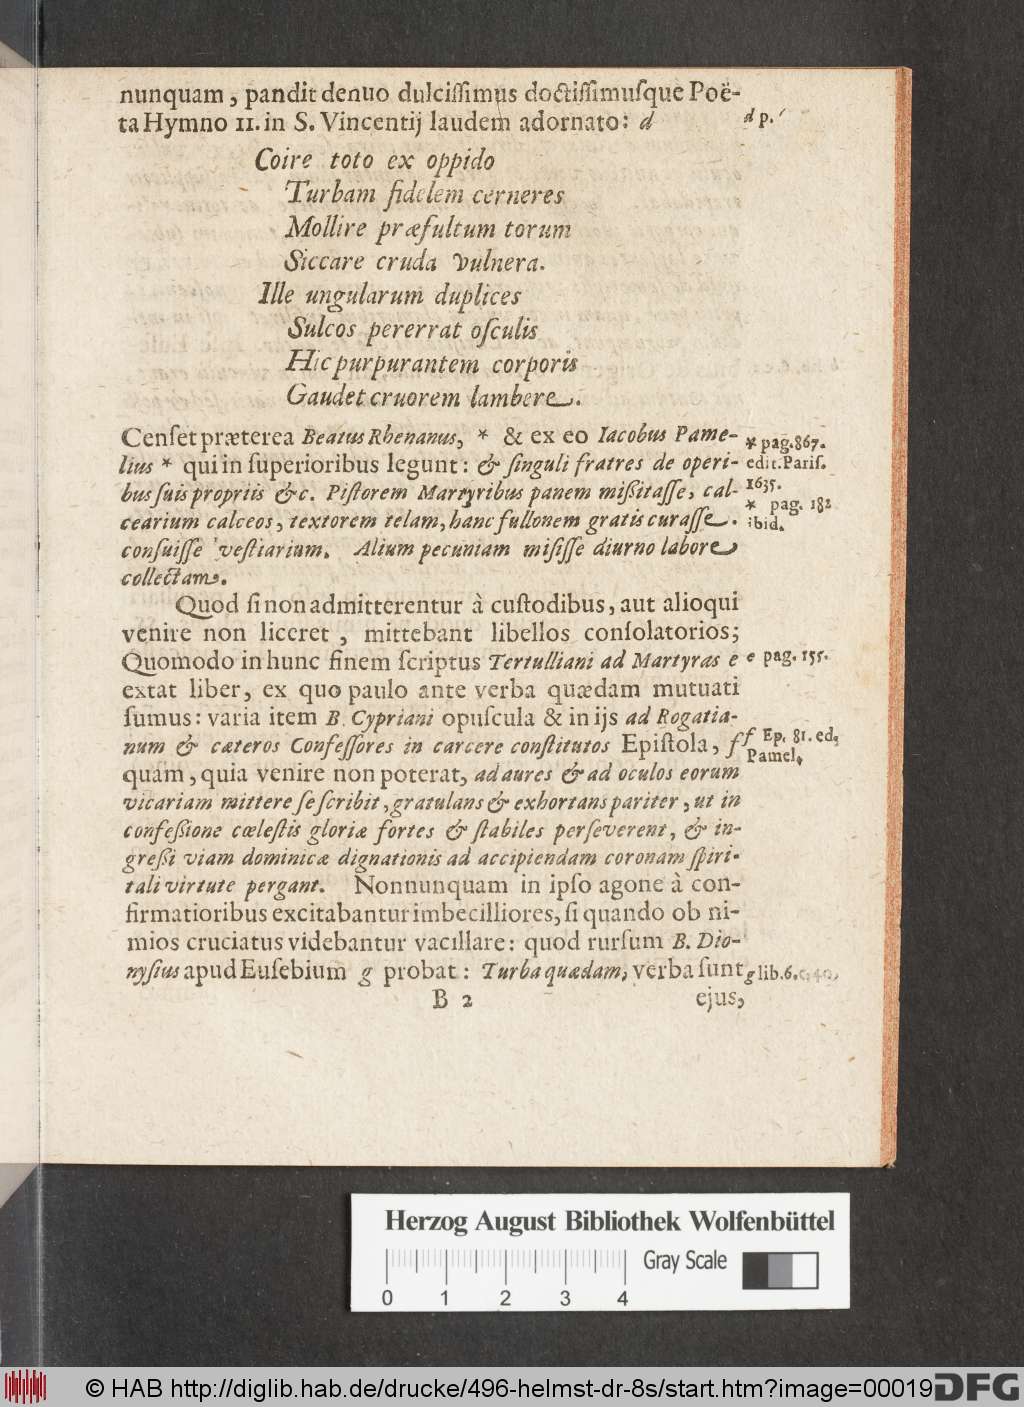 nunquam, pandit denuo dulciſſimus doctiſſimuſque Poë-
ta Hymno 11. in S. Vincentij laudem adornato: d
d p.
Coire toto ex oppido
Turbam fidelem cerneres
Mollire præſultum torum
Siccare cruda vulnera.
Ille ungularum duplices
Sulcos pererrat oſculis
Hic purpurantem corporis
Gaudet cruorem lambere.
Cenſet præterea Beatus Rhenanus, * & ex eo Iacobus Pame-
* pag. 867.
lius * qui in ſuperioribus legunt: & ſinguli fratres de operi-
edit. Pariſ.
bus ſuis propriis &c. Piſtorem Martyribus panem mißitaſſe, cal-
1635.
* pag. 182
cearium calceos, textorem telam, hanc fullonem gratis curaſſe.
ibid.
conſuiſſe veſtiarium. Alium pecuniam miſiſſe diurno labore
collectam.
Quod ſi non admitterentur à cuſtodibus, aut alioqui
venire non liceret, mittebant libellos conſolatorios;
Quomodo in hunc finem ſcriptus Tertulliani ad Martyras e
e pag. 155.
extat liber, ex quo paulo ante verba quædam mutuati
ſumus: varia item B. Cypriani opuſcula & in ijs ad Rogatia-
num & cæteros Confeſſores in carcere conſtitutos Epiſtola, f
f Ep. 81. ed.
Pamel.
quam, quia venire non poterat, ad aures & ad oculos eorum
vicariam mittere ſe ſcribit, gratulans & exhortans pariter, ut in
confeßione cœleſtis gloriæ fortes & ſtabiles perſeverent, & in-
greßi viam dominicæ dignationis ad accipiendam coronam ſpiri-
tali virtute pergant. Nonnunquam in ipſo agone à con-
firmatioribus excitabantur imbecilliores, ſi quando ob ni-
mios cruciatus videbantur vacillare: quod rurſum B. Dio-
nyſius apud Euſebium g probat: Turba quædam, verba ſunt
g lib. 6. c. 40.
B 2
ejus,
Herzog August Bibliothek Wolfenbüttel
Gray Scale
0 1 2 3 4
© HAB http://diglib.hab.de/drucke/496-helmst-dr-8s/start.htm?image=00019
DFG